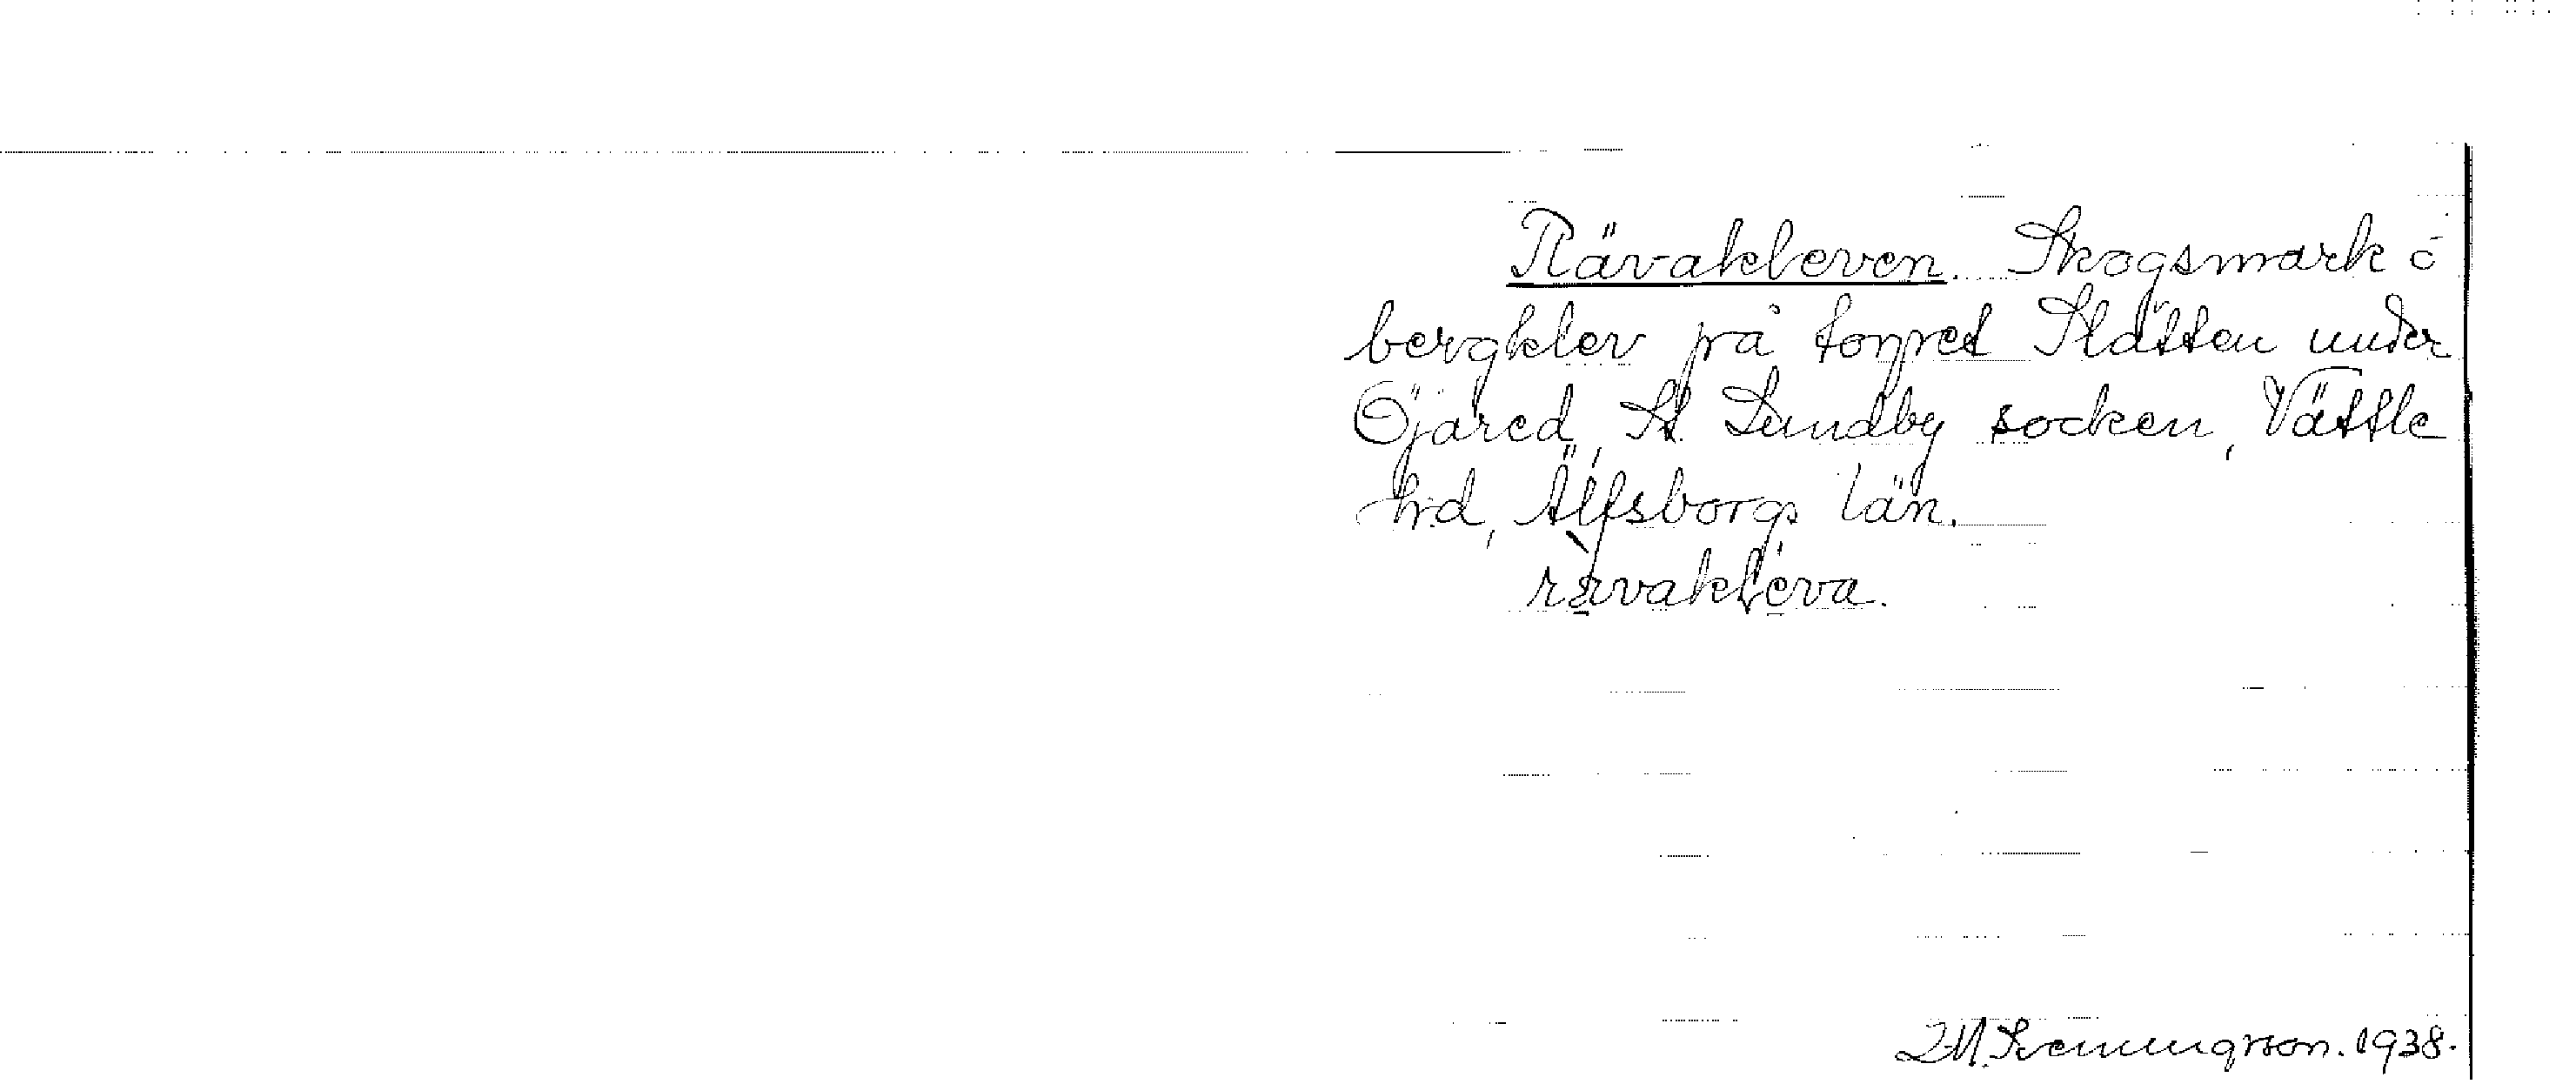 Rävakleven. Skogsmark o
bergklev på torpet Slätten under
Öjared, St. Lundby socken, Vättle
hd, Älfsborgs län.
rävakleva.
Svenungsson. 1938.